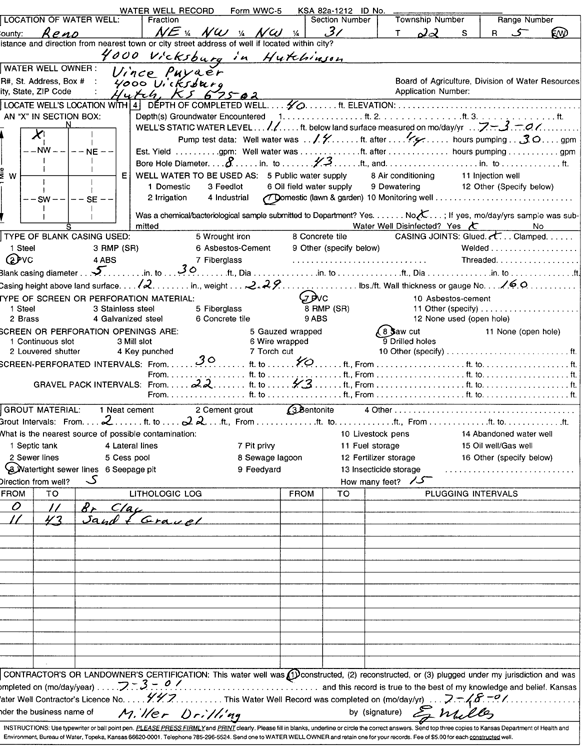 WATER WELL RECORD Form WWC-5 KSA 82a-1212 ID No.
LOCATION OF WATER WELL: Fraction Section Number Township Number Range Number
County: Reno NE ¼ NW ¼ NW ¼ 31 T 22 S R 5 E/W
istance and direction from nearest town or city street address of well if located within city?
4000 Vicksburg in Hutchinson
WATER WELL OWNER: Vince Puyaer
R#, St. Address, Box # : 4000 Vicksburg Board of Agriculture, Division of Water Resources
ity, State, ZIP Code : Hutch, KS 67502 Application Number:
LOCATE WELL'S LOCATION WITH 4 DEPTH OF COMPLETED WELL 40 ft. ELEVATION:
AN "X" IN SECTION BOX: Depth(s) Groundwater Encountered 1. ft. 2. ft. 3. ft.
N WELL'S STATIC WATER LEVEL 11 ft. below land surface measured on mo/day/yr 7-3-01
X Pump test data: Well water was 14 ft. after 44 hours pumping 30 gpm
NW NE Est. Yield gpm: Well water was ft. after hours pumping gpm
Bore Hole Diameter 8 in. to 43 ft., and in. to ft.
W E WELL WATER TO BE USED AS: 5 Public water supply 8 Air conditioning 11 Injection well
1 Mile 1 Domestic 3 Feedlot 6 Oil field water supply 9 Dewatering 12 Other (Specify below)
SW SE 2 Irrigation 4 Industrial 7 Domestic (lawn & garden) 10 Monitoring well
Was a chemical/bacteriological sample submitted to Department? Yes No X ; If yes, mo/day/yrs sample was sub-
S mitted Water Well Disinfected? Yes X No
TYPE OF BLANK CASING USED: 5 Wrought iron 8 Concrete tile CASING JOINTS: Glued X Clamped
1 Steel 3 RMP (SR) 6 Asbestos-Cement 9 Other (specify below) Welded
2 PVC 4 ABS 7 Fiberglass Threaded
Blank casing diameter 5 in. to 30 ft., Dia in. to ft., Dia in. to ft.
Casing height above land surface 12 in., weight 2.29 lbs./ft. Wall thickness or gauge No. 160
TYPE OF SCREEN OR PERFORATION MATERIAL: 7 PVC 10 Asbestos-cement
1 Steel 3 Stainless steel 5 Fiberglass 8 RMP (SR) 11 Other (specify)
2 Brass 4 Galvanized steel 6 Concrete tile 9 ABS 12 None used (open hole)
SCREEN OR PERFORATION OPENINGS ARE: 5 Gauzed wrapped 8 Saw cut 11 None (open hole)
1 Continuous slot 3 Mill slot 6 Wire wrapped 9 Drilled holes
2 Louvered shutter 4 Key punched 7 Torch cut 10 Other (specify)
SCREEN-PERFORATED INTERVALS: From 30 ft. to 40 ft., From ft. to ft.
From ft. to ft., From ft. to ft.
GRAVEL PACK INTERVALS: From 22 ft. to 43 ft., From ft. to ft.
From ft. to ft., From ft. to ft.
GROUT MATERIAL: 1 Neat cement 2 Cement grout 3 Bentonite 4 Other
Grout Intervals: From 2 ft. to 22 ft., From ft. to ft., From ft. to ft.
What is the nearest source of possible contamination: 10 Livestock pens 14 Abandoned water well
1 Septic tank 4 Lateral lines 7 Pit privy 11 Fuel storage 15 Oil well/Gas well
2 Sewer lines 5 Cess pool 8 Sewage lagoon 12 Fertilizer storage 16 Other (specify below)
3 Watertight sewer lines 6 Seepage pit 9 Feedyard 13 Insecticide storage
Direction from well? S How many feet? 15
FROM TO LITHOLOGIC LOG FROM TO PLUGGING INTERVALS
0 11 Br Clay
11 43 Sand & Gravel
CONTRACTOR'S OR LANDOWNER'S CERTIFICATION: This water well was (1) constructed, (2) reconstructed, or (3) plugged under my jurisdiction and was
ompleted on (mo/day/year) 7-3-01 and this record is true to the best of my knowledge and belief. Kansas
Water Well Contractor's Licence No. 447 This Water Well Record was completed on (mo/day/yr) 7-18-01
nder the business name of Miller Drilling by (signature)
INSTRUCTIONS: Use typewriter or ball point pen. PLEASE PRESS FIRMLY and PRINT clearly. Please fill in blanks, underline or circle the correct answers. Send top three copies to Kansas Department of Health and
Environment, Bureau of Water, Topeka, Kansas 66620-0001. Telephone 785-296-5524. Send one to WATER WELL OWNER and retain one for your records. Fee of $5.00 for each constructed well.